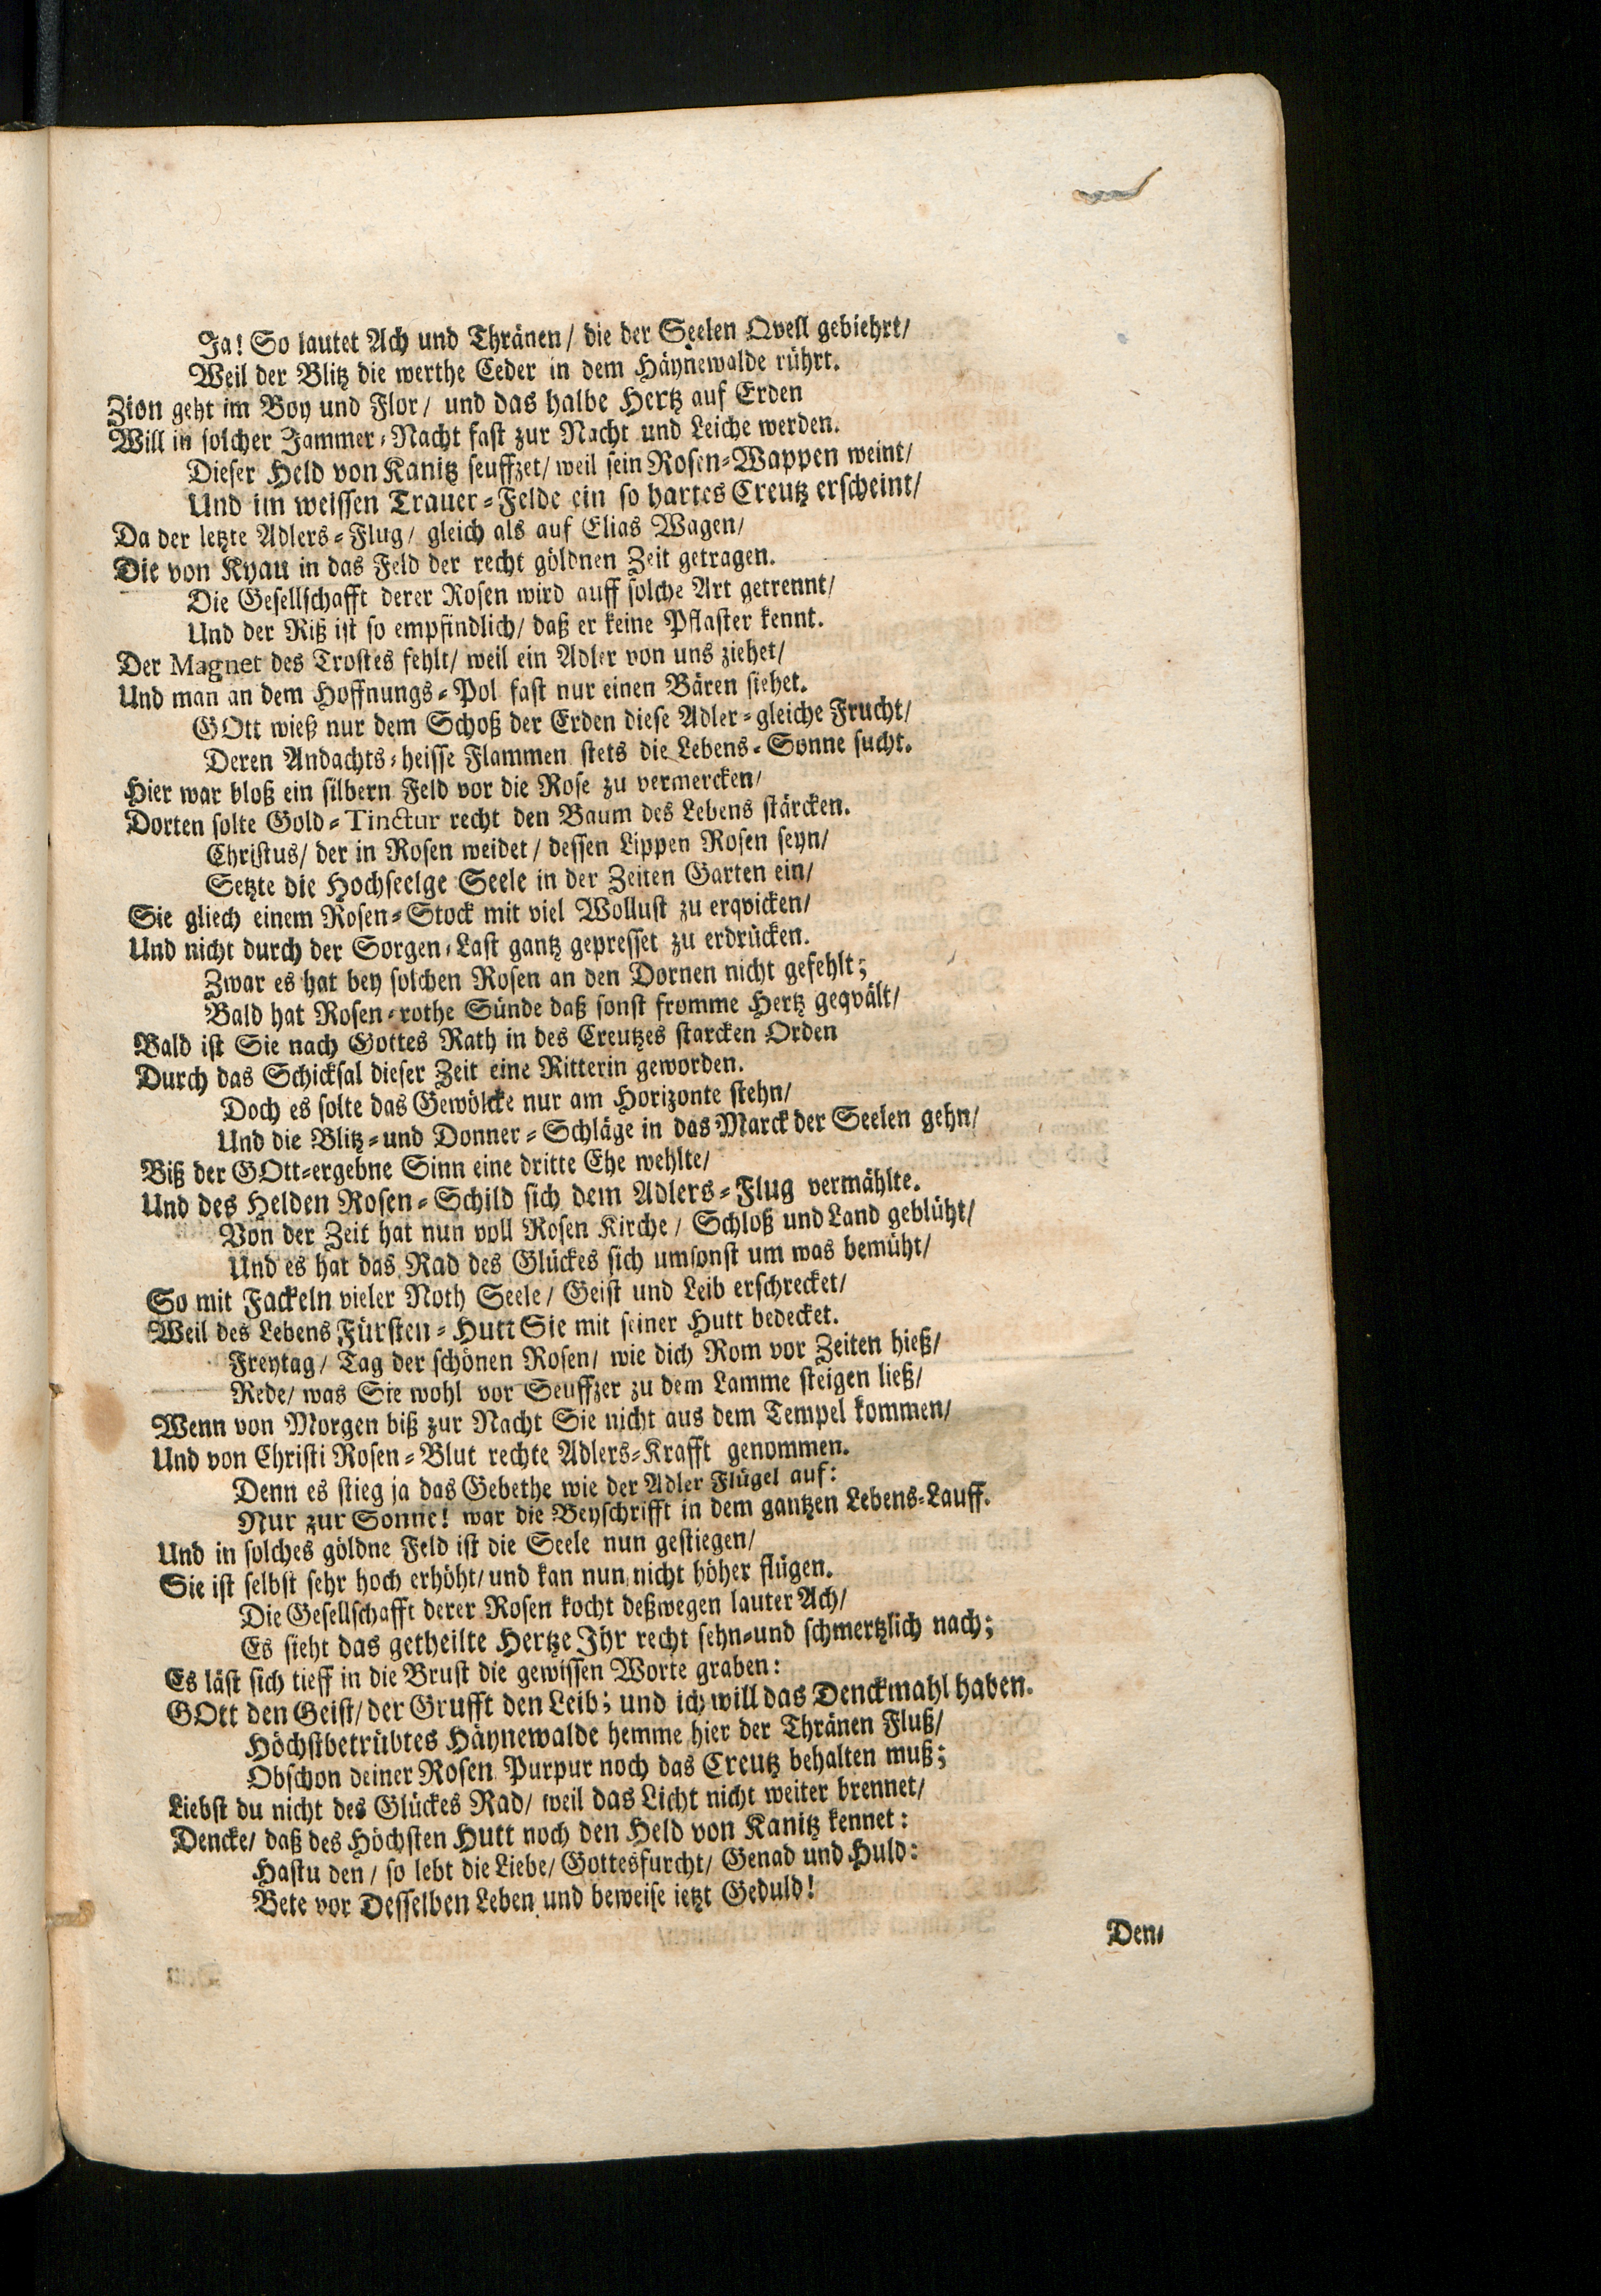 Ja! So lautet Ach und Thränen/ die der Seelen Qvell gebiehrt/
Weil der Blitz die werthe Ceder in dem Häynewalde rührt.
Zion geht im Boy und Flor/ und das halbe Hertz auf Erden
Will in solcher Jammer-Nacht fast zur Nacht und Leiche werden.
Dieser Held von Kanitz seuffzet/ weil sein Rosen-Wappen weint/
Und im weissen Trauer-Felde ein so hartes Creutz erscheint/
Da der letzte Adlers-Flug/ gleich als auf Elias Wagen/
Die von Kyau in das Feld der recht göldnen Zeit getragen.
Die Gesellschafft derer Rosen wird auff solche Art getrennt/
Und der Riß ist so empfindlich/ daß er keine Pflaster kennt.
Der Magnet des Trostes fehlt/ weil ein Adler von uns ziehet/
Und man an dem Hoffnungs-Pol fast nur einen Bären siehet.
GOtt wieß nur dem Schoß der Erden diese Adler-gleiche Frucht/
Deren Andachts-heisse Flammen stets die Lebens-Sonne sucht.
Hier war bloß ein silbern Feld vor die Rose zu vermercken/
Dorten solte Gold-Tinctur recht den Baum des Lebens stärcken.
Christus/ der in Rosen weidet/ dessen Lippen Rosen seyn/
Setzte die Hochseelge Seele in der Zeiten Garten ein/
Sie gliech einem Rosen-Stock mit viel Wollust zu erqvicken/
Und nicht durch der Sorgen-Last gantz gepresset zu erdrücken.
Zwar es hat bey solchen Rosen an den Dornen nicht gefehlt;
Bald hat Rosen-rothe Sünde daß sonst fromme Hertz geqvält/
Bald ist Sie nach Gottes Rath in des Creutzes starcken Orden
Durch das Schicksal dieser Zeit eine Ritterin geworden.
Doch es solte das Gewölcke nur am Horizonte stehn/
Und die Blitz-und Donner-Schläge in das Marck der Seelen gehn/
Biß der GOtt-ergebne Sinn eine dritte Ehe wehlte/
Und des Helden Rosen-Schild sich dem Adlers-Flug vermählte.
Von der Zeit hat nun voll Rosen Kirche/ Schloß und Land geblüht/
Und es hat das Rad des Glückes sich umsonst um was bemüht/
So mit Fackeln vieler Noth Seele/ Geist und Leib erschrecket/
Weil des Lebens Fürsten-Hutt Sie mit seiner Hutt bedecket.
Freytag/ Tag der schönen Rosen/ wie dich Rom vor Zeiten hieß/
Rede/ was Sie wohl vor Seuffzer zu dem Lamme steigen ließ/
Wenn von Morgen biß zur Nacht Sie nicht aus dem Tempel kommen/
Und von Christi Rosen-Blut rechte Adlers-Krafft genommen.
Denn es stieg ja das Gebethe wie der Adler Flügel auf:
Nur zur Sonne! war die Beyschrifft in dem gantzen Lebens-Lauff.
Und in solches göldne Feld ist die Seele nun gestiegen/
Sie ist selbst sehr hoch erhöht/ und kan nun nicht höher flügen.
Die Gesellschafft derer Rosen kocht deßwegen lauter Ach/
Es sieht das getheilte Hertze Ihr recht sehn-und schmertzlich nach;
Es läst sich tieff in die Brust die gewissen Worte graben:
GOtt den Geist/ der Grufft den Leib; und ich will das Denckmahl haben.
Höchstbetrübtes Häynewalde hemme hier der Thränen Fluß/
Obschon deiner Rosen Purpur noch das Creutz behalten muß;
Liebst du nicht des Glückes Rad/ weil das Licht nicht weiter brennet/
Dencke/ daß des Höchsten Hutt noch den Held von Kanitz kennet:
Hastu den/ so lebt die Liebe/ Gottesfurcht/ Genad und Huld:
Bete vor Desselben Leben und beweise ietzt Geduld!
Den-